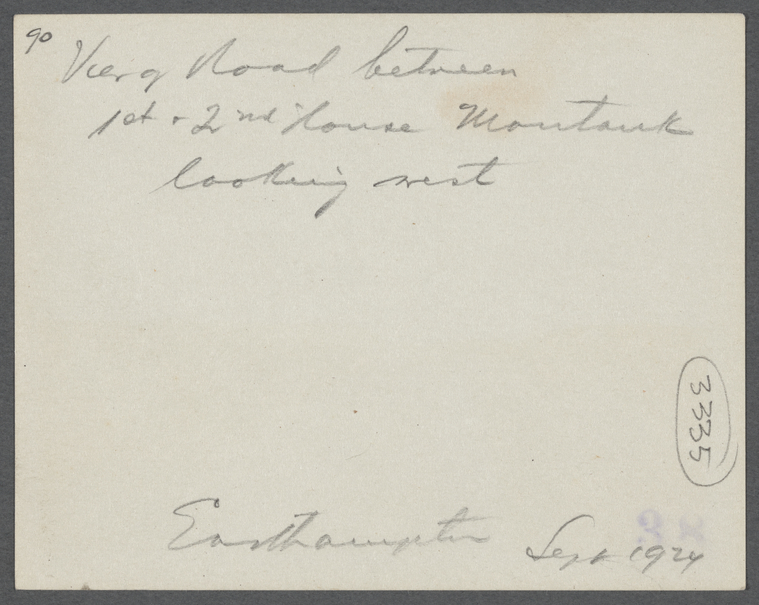 90
View of Road between
1st + 2nd House Montauk
looking west
3335
Easthampton Sept 1924